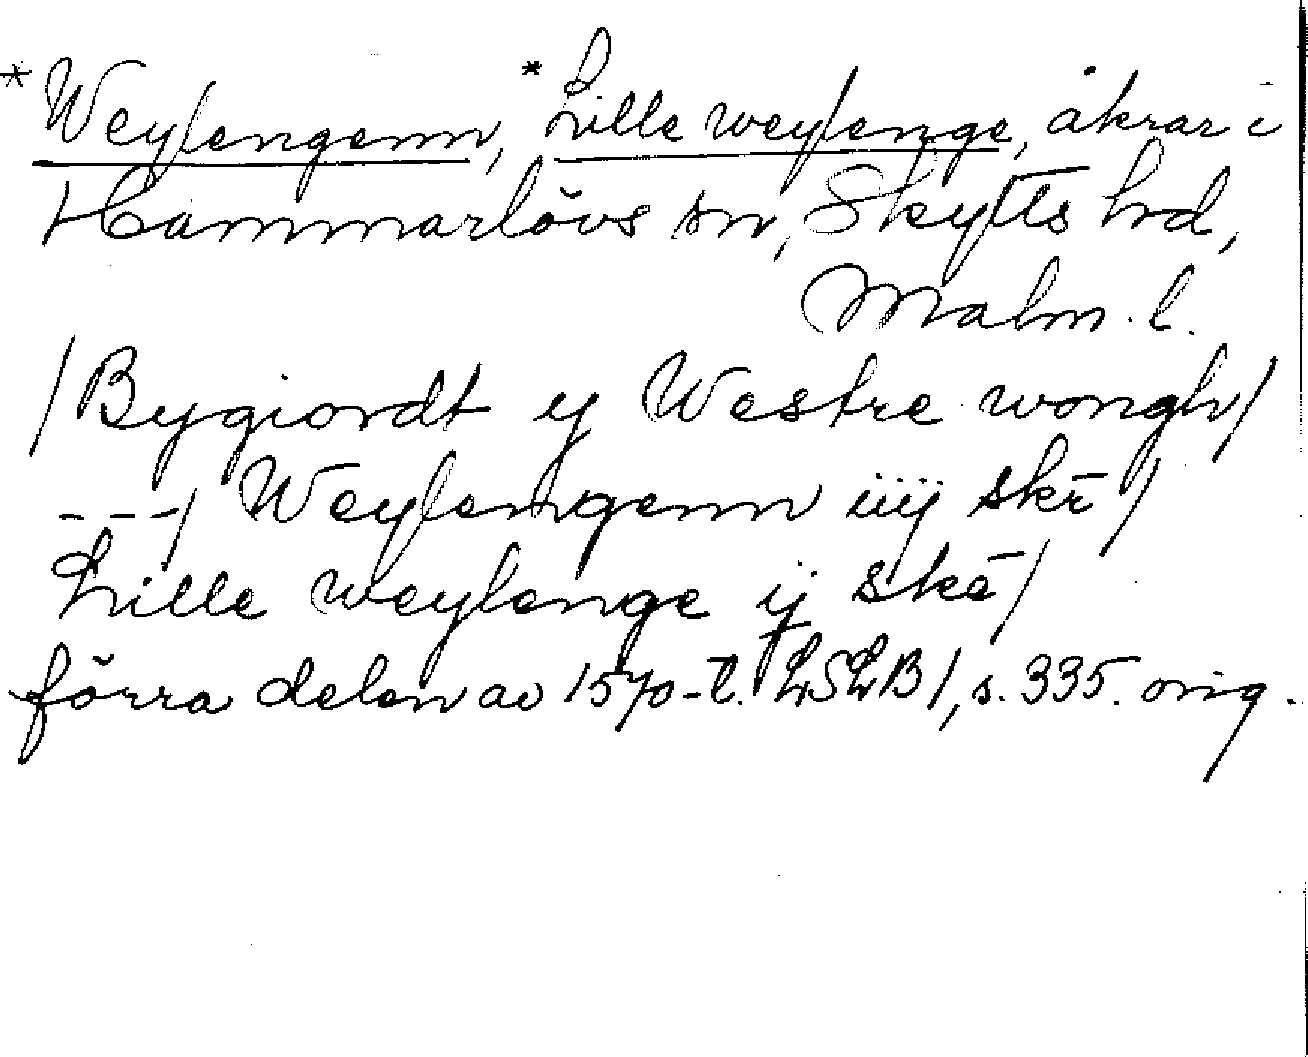 *Weylengenn, *Lille weylenge, åkrar i
Hammarlövs sn, Skytts hd,
Malm. l.
/Bygiordt y Westre wongh/
---/ Weylengenn iiij skē/
Lille weylenge ij skē/
förra delen av 1570-t. LSLB 1, s. 335. orig.